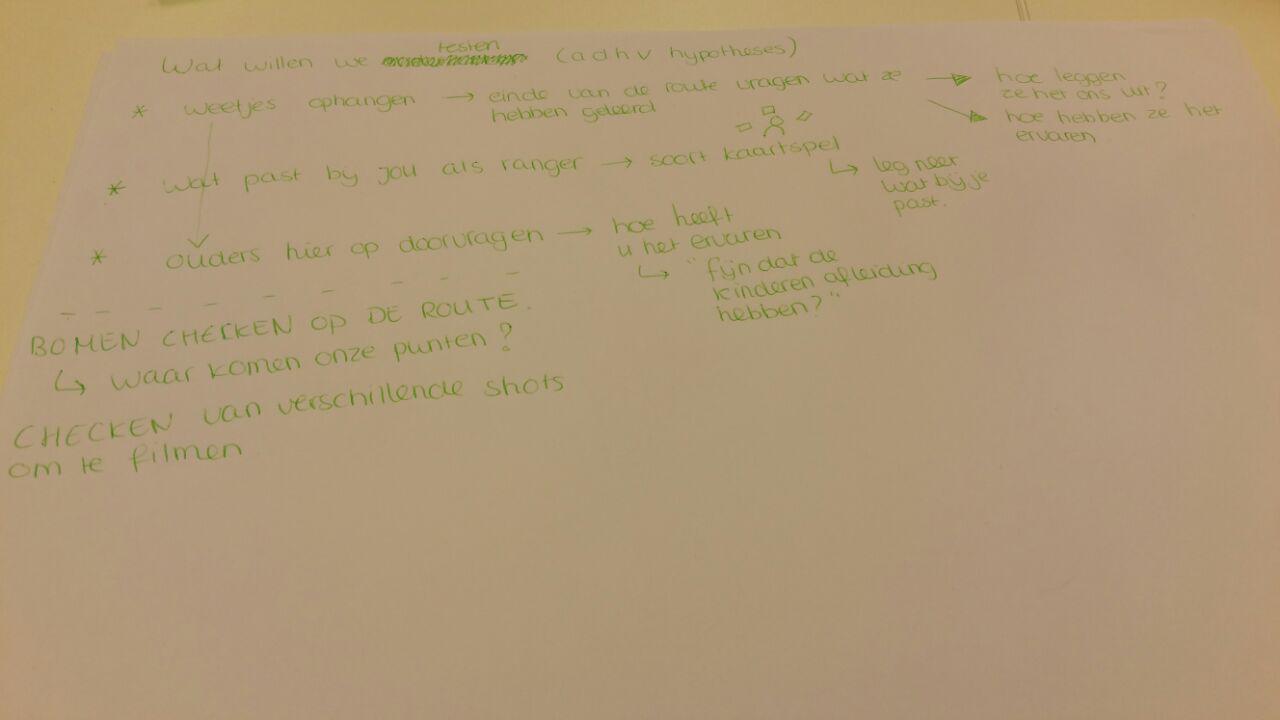 Wat willen we testen (adhv hypotheses)
* weetjes ophangen → einde van de route vragen wat ze
hebben geleerd
→ hoe leggen
ze het ons uit?
→ hoe hebben ze het
ervaren
* Wat past bij jou als ranger → soort kaartspel
↳ leg neer
wat bij je
past.
* ouders hier op doorvragen → hoe heeft
u het ervaren
↳ "fijn dat de
kinderen afleiding
hebben?"
BOMEN CHECKEN OP DE ROUTE.
↳ waar komen onze punten?
CHECKEN van verschillende shots
om te filmen